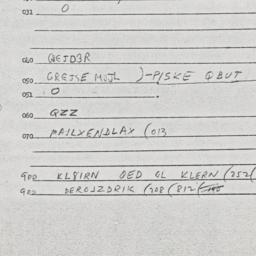 032 O
040 QEJD3R
050 GREJSE MUJL )-PJSKE QBUT
052 O
060 QZZ
070 MAILXENDLAX (013
900 KL8IRN OED OL KLERN (252(
902 DEROJZDRIK (208 (812(